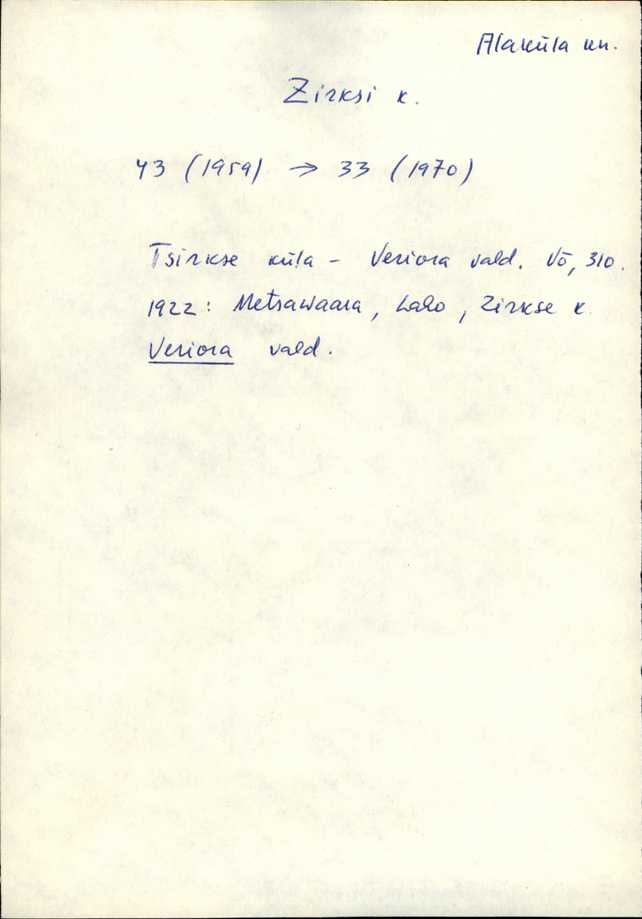 Alaküla kn.
Zirksi k.
43 (1959) → 33 (1970)
Tsirkse küla - Veriora vald. Võ, 310.
1922: Metsawaara, Laho, Zirkse k.
Veriora vald.